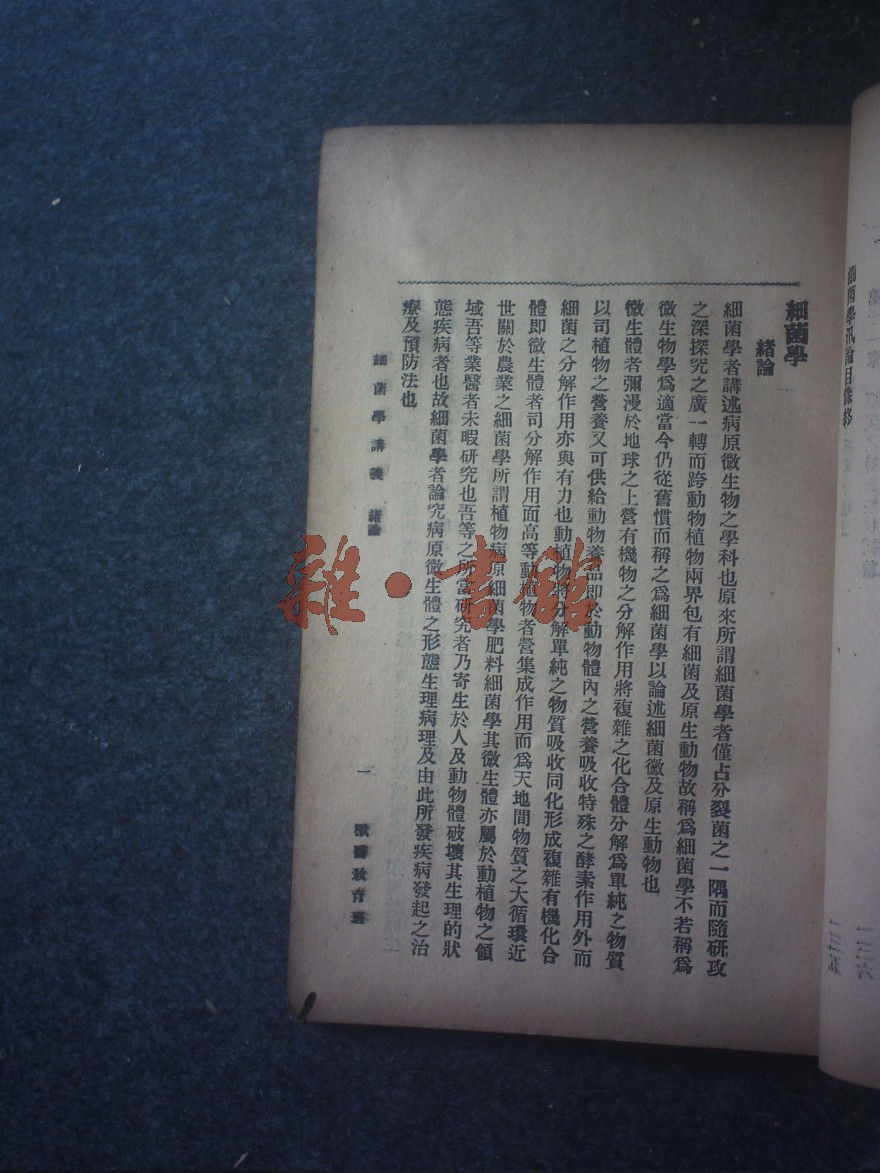 細菌學
緒論
細菌學者講述病原微生物之學科也原來所謂細菌學者僅占分裂菌之一隅而隨研攻
之深探究之廣一轉而跨動物植物兩界包有細菌及原生動物故稱爲細菌學不若稱爲
微生物學爲適當今仍從舊慣而稱之爲細菌學以論述細菌黴及原生動物也
微生體者彌漫於地球之上營有機物之分解作用將複雜之化合體分解爲單純之物質
以司植物之營養又可供給動物養品即於動物體內之營養吸收特殊之酵素作用外而
細菌之分解作用亦與有力也動植物將分解單純之物質吸收同化形成複雜有機化合
體即微生體者司分解作用面高等動植物者營集成作用而爲天地間物質之大循環近
世關於農業之細菌學所謂植物病原細菌學肥料細菌學其微生體亦屬於動植物之領
域吾等業醫者未暇研究也吾等之所當研究者乃寄生於人及動物體破壞其生理的狀
態疾病者也故細菌學者論究病原微生體之形態生理病理及由此所發疾病發起之治
療及預防法也
細菌學講義 緒論
一
獸醫教育班
細菌學汎論目錄終
一三五
一三六
雜·書館